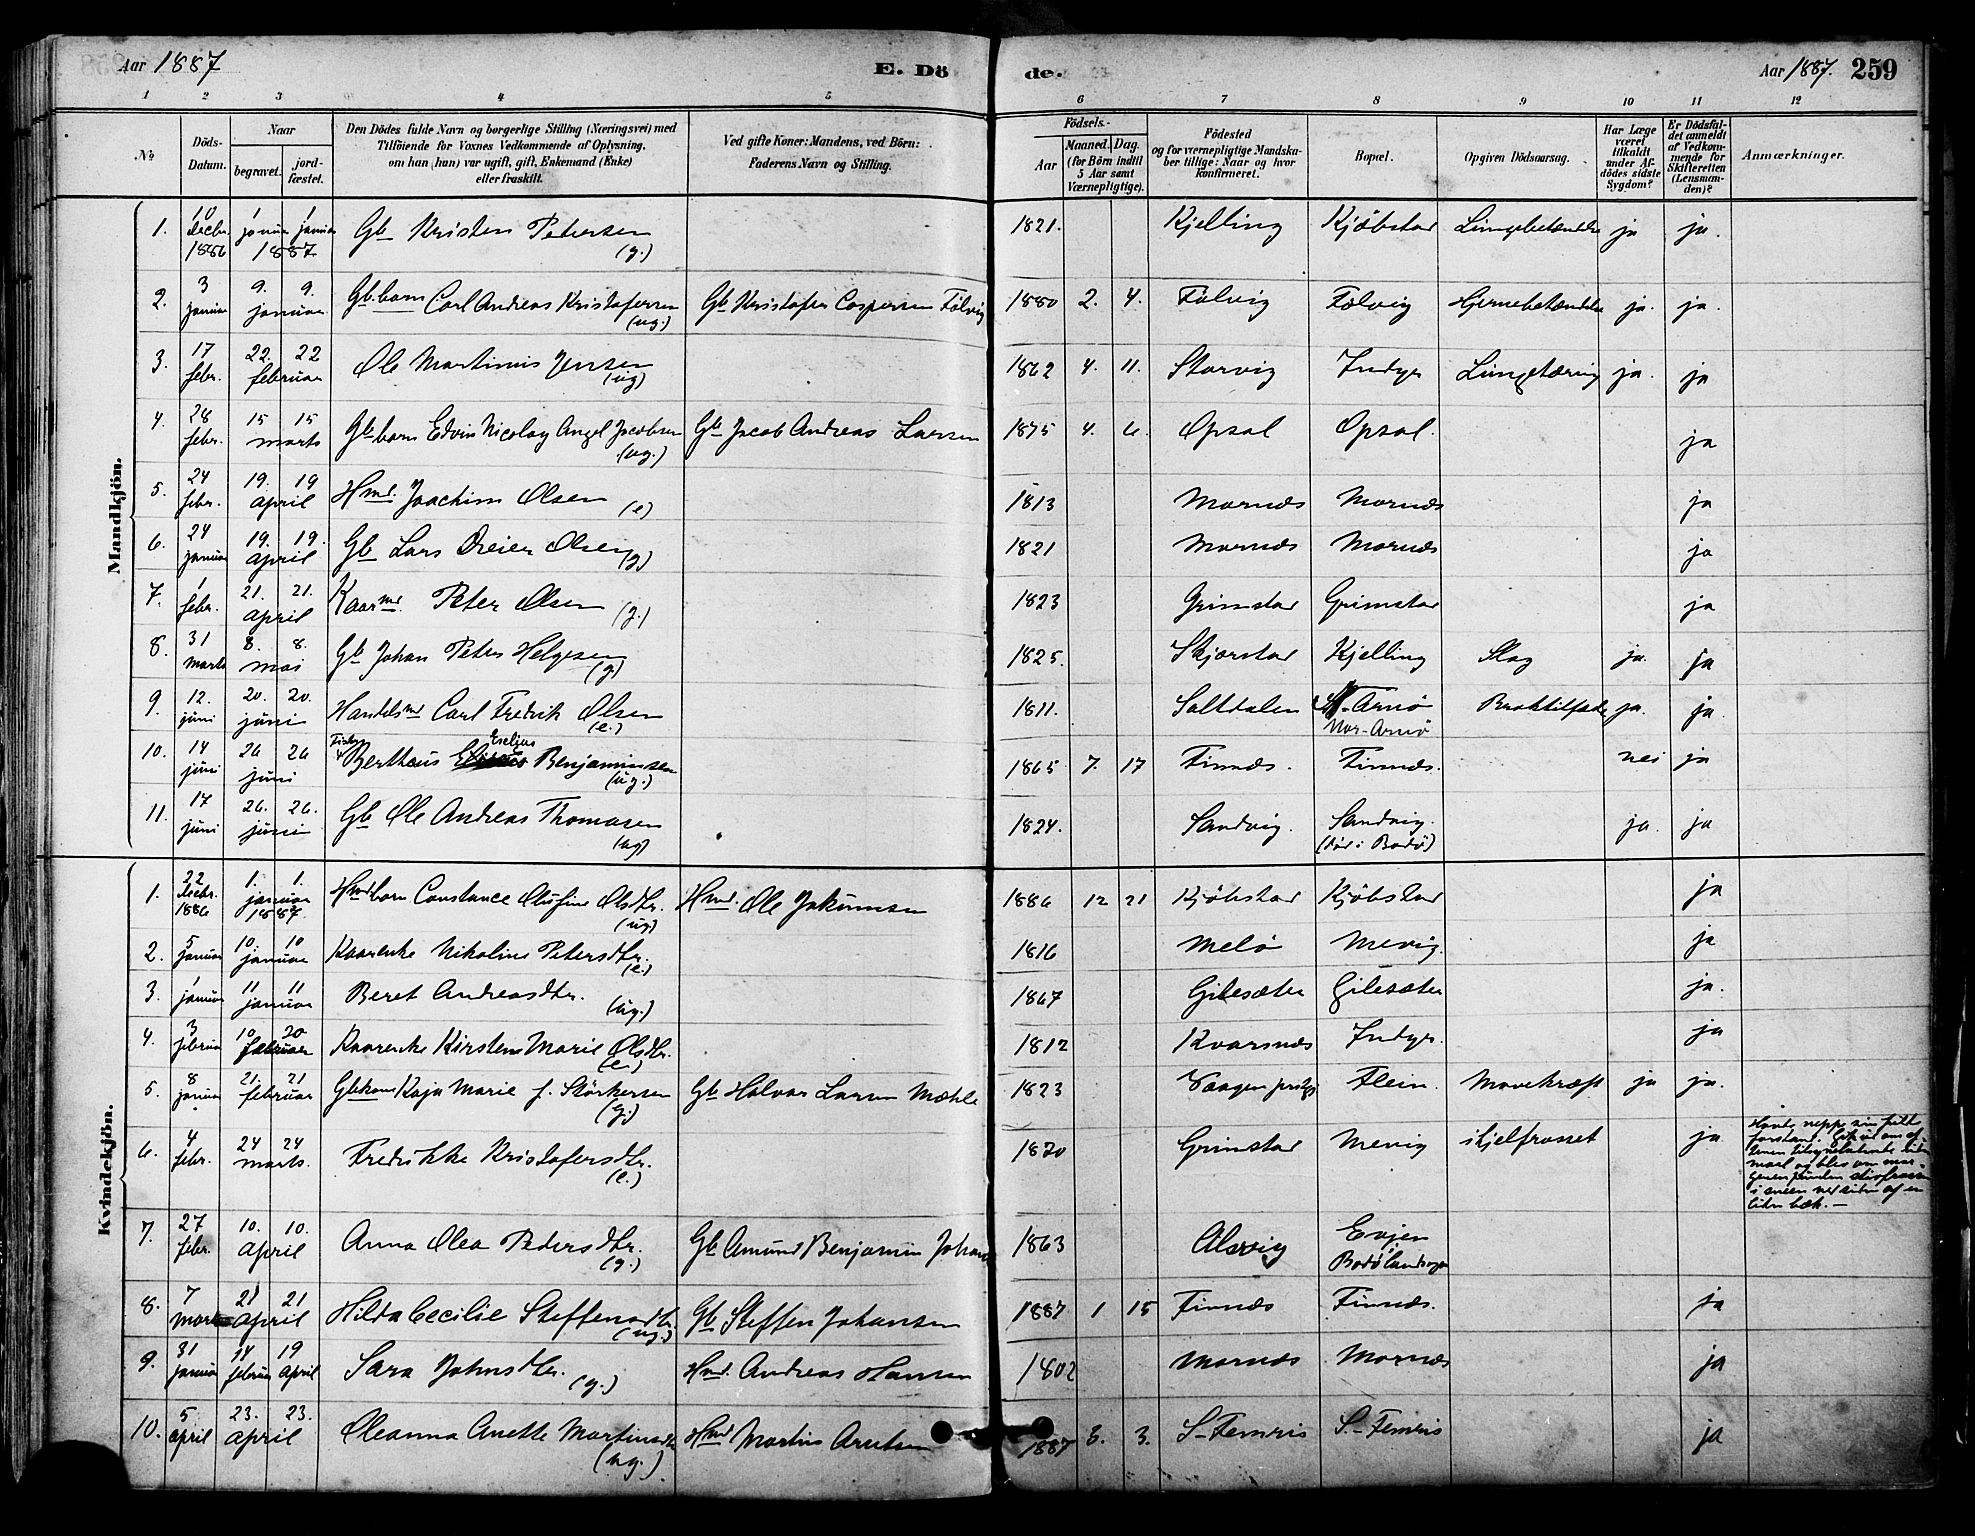 Aar 1887
E. Dö
de.
Aar 1887. 259
1 2 3 4 5 6 7 8 9 10 11 12
No
Döds-Datum.
Naar
begravet.
jord-fæstet.
Den Dödes fulde Navn og borgerlige Stilling (Næringsvei) med
Tilföiende for Voxnes Vedkommende af Oplysning,
om han (hun) var ugift, gift, Enkemand (Enke)
eller fraskilt.
Ved gifte Koner: Mandens, ved Börn:
Faderens Navn og Stilling.
Födsels-
Aar
Maaned. Dag.
(for Börn indtil
5 Aar samt
Værnepligtige).
Födested
og for værnepligtige Mandska-
ber tillige: Naar og hvor
konfirmeret.
Bopæl.
Opgiven Dödsaarsag.
Har Læge
været
tilkaldt
under Af-
dödes sidste
Sygdom?
Er Dödsfal-
det anmeldt
af Vedkom-
mende for
Skifteretten
(Lensman-
den)?
Anmærkninger.
Mandkjön.
1. 10 Decbr. 1886 1 januar 1 januar 1887 Gb Kristen Petersen (g.) 1821. Kjelling Kjøbstad Lungebetændelse ja ja.
2. 3 januar 9. 9. januar Gb. barn Carl Andreas Kristofersen (ug.) Gb Kristofer Caspersen Følvig 1880 2. 4. Følvig Følvig Hjernebetændelse ja. ja.
3. 17 febr. 22. 22 februar Ole Martinus Jensen (ug) 1862 4. 11. Storvig Indyr Lungetæring ja. ja
4. 28 febr. 15 15 marts Gb. barn Edvin Nicolay Angel Jacobsen (ug.) Gb Jacob Andreas Larsen 1875 4. 6. Opsal Opsal. ja
5. 24 febr. 19. 19 april Hmd. Joachim Olsen (e) 1813 Mornæs Mornæs ja
6. 24 januar 19. 19. april Gb Lars Dreier Olsen (g) 1821 Mornæs Mornæs ja
7. 1 febr. 21. 21. april Kaarmd. Peter Olsen (g.) 1823 Grimstad Grimstad ja
8. 31 marts 8. 8. mai Gb Johan Peter Helgesen (g) 1825. Skjerstad Kjelling Slag ja. ja
9. 12. juni 20. 20. juni Handelsmd Carl Fredrik Olsen (e.) 1811. Saltdalen Arnø Nor-Arnø Broktilfælde ja. ja.
10. 14 juni 26 26 juni Fisker Bertheus Eseljus Benjaminsen (ug.) 1865 7. 17 Finnæs. Finnæs. nei ja
11. 17 juni 26. 26. juni Gb Ole Andreas Thomasen (ug) 1824. Sandvig. Sandvig. (død i Bodø) ja. ja
Kvindekjön.
1. 22 Decbr. 1886 1. 1. januar 1887. Hmd barn Constance Olufine Olsdtr. (ug) Hmd. Ole Jakumsen 1886 12 21 Kjøbstad Kjøbstad ja
2. 5 januar 10. 10 januar Kaarenke Nikoline Petersdtr. (e.) 1816 Melø Mevig. ja
3. 1 januar 11 11 januar Beret Andreasdtr. (ug.) 1867 Gilesæter Gilesæter ja.
4. 3 februar 10. 20 februar Kaarenke Kirstens Marie Olsdtr. (e.) 1812 Kvarsnæs Indyr. ja
5. 8 januar 21. 21 februar Gbkone Kaja Marie f. Størkersen (g.) Gb Halvar Larsen Mæhle 1823 Vaagen prstgj Flein. Mavekræft ja ja.
6. 4 febr. 24 24 marts. Fredrikke Kristofersdtr. (e.) 1820 Grimstad Mevig ihjelfrosset ja
Havde neppe sin fulde forstand. Gik ud om af- tenen og blev om mor- genen funden stivfrossen i sneen ved siden af en liden bæk. —
7. 27 febr. 10. 10. april Anna Olea Pedersdtr. (g.) Gb Amund Benjamin Johans 1863 Alsvig Evjen Bodø landsogn
8. 7 mars 21 21 april Hilda Cecilie Steffensdtr. (ug.) Gb Steffen Johansen 1887 1 15 Finnæs Finnæs. ja
9. 31 januar 14 februar 19 april Sara Johnsdtr. (g.) Hmd. Andreas Hansen 1802 Mornæs Mornæs ja
10. 5 april 23. 23. april Oleanna Anette Martinsdtr (ug.) Hmd Martin Arntsen 1887 3. 3. S-Femris S.-Femris ja